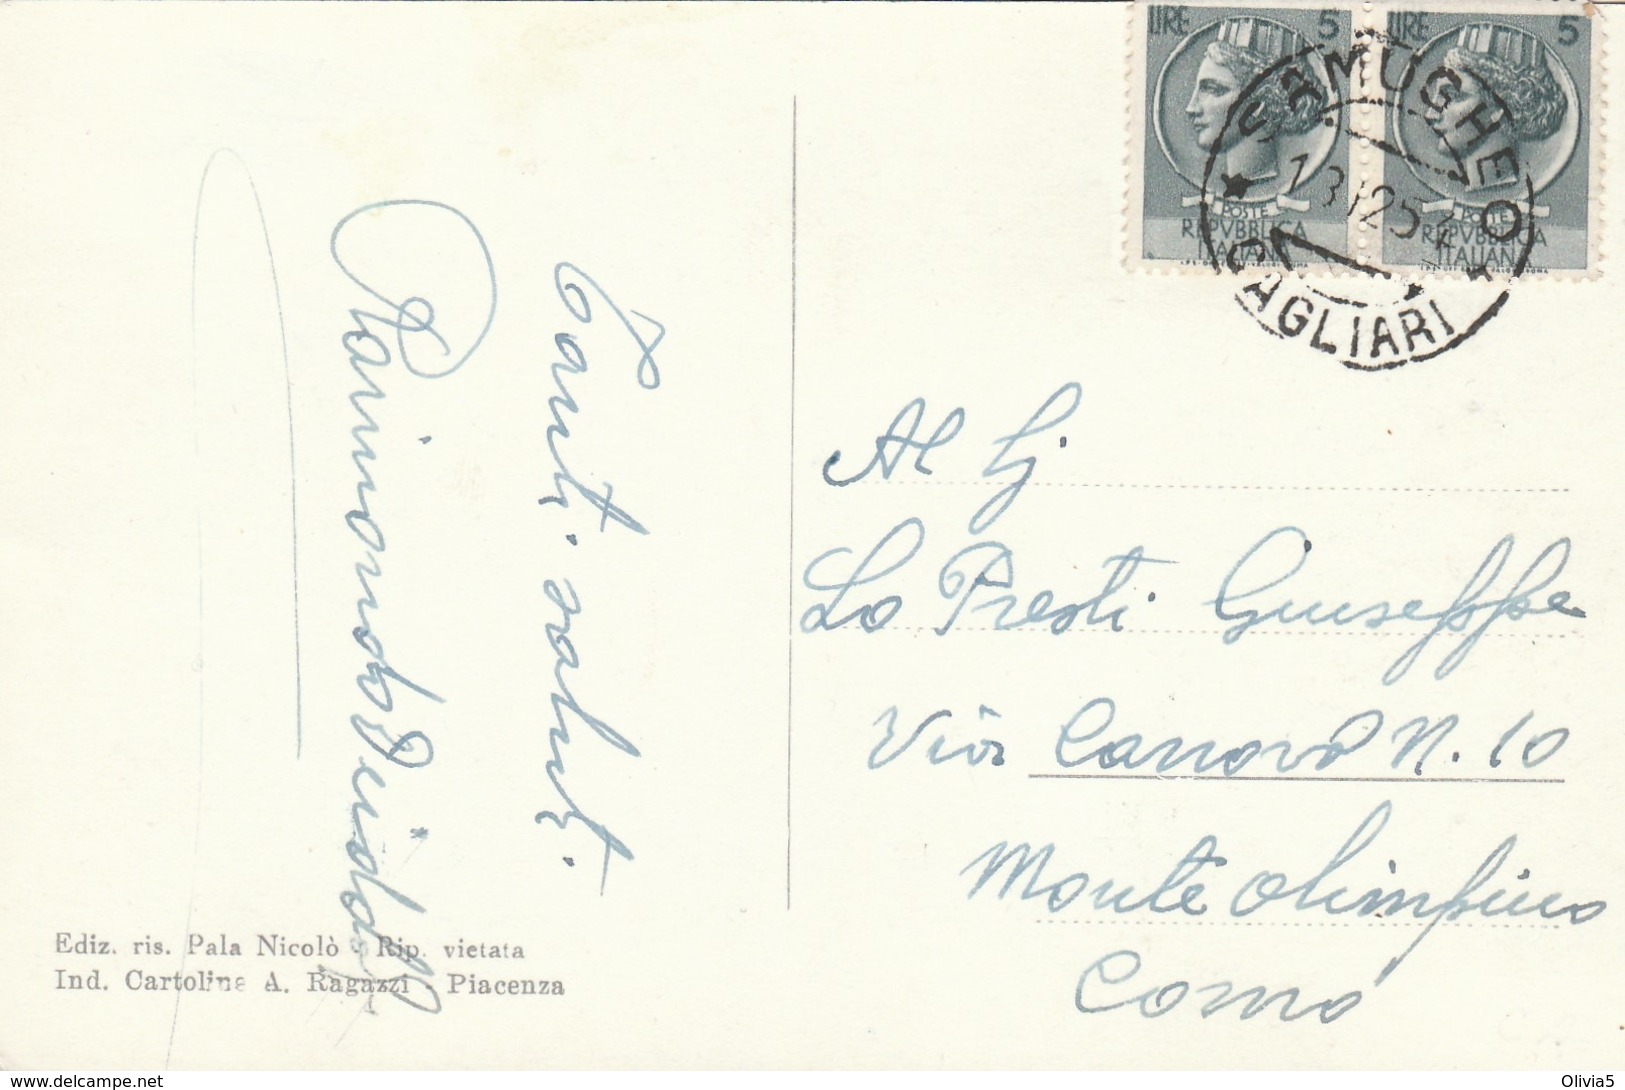 LIRE 5
POSTE
REPVBBLICA
ITALIANA
LIRE 5
POSTE
REPVBBLICA
ITALIANA
SAMUGHEO
CAGLIARI
Tanti saluti.
Raimondo
Al Sj
Lo Presti Giuseppe
Via Canova N. 10
Monte Olimpino
Como
Ediz. ris. Pala Nicolò - Rip. vietata
Ind. Cartoline A. Ragazzi - Piacenza
delcampe.net
Olivia5